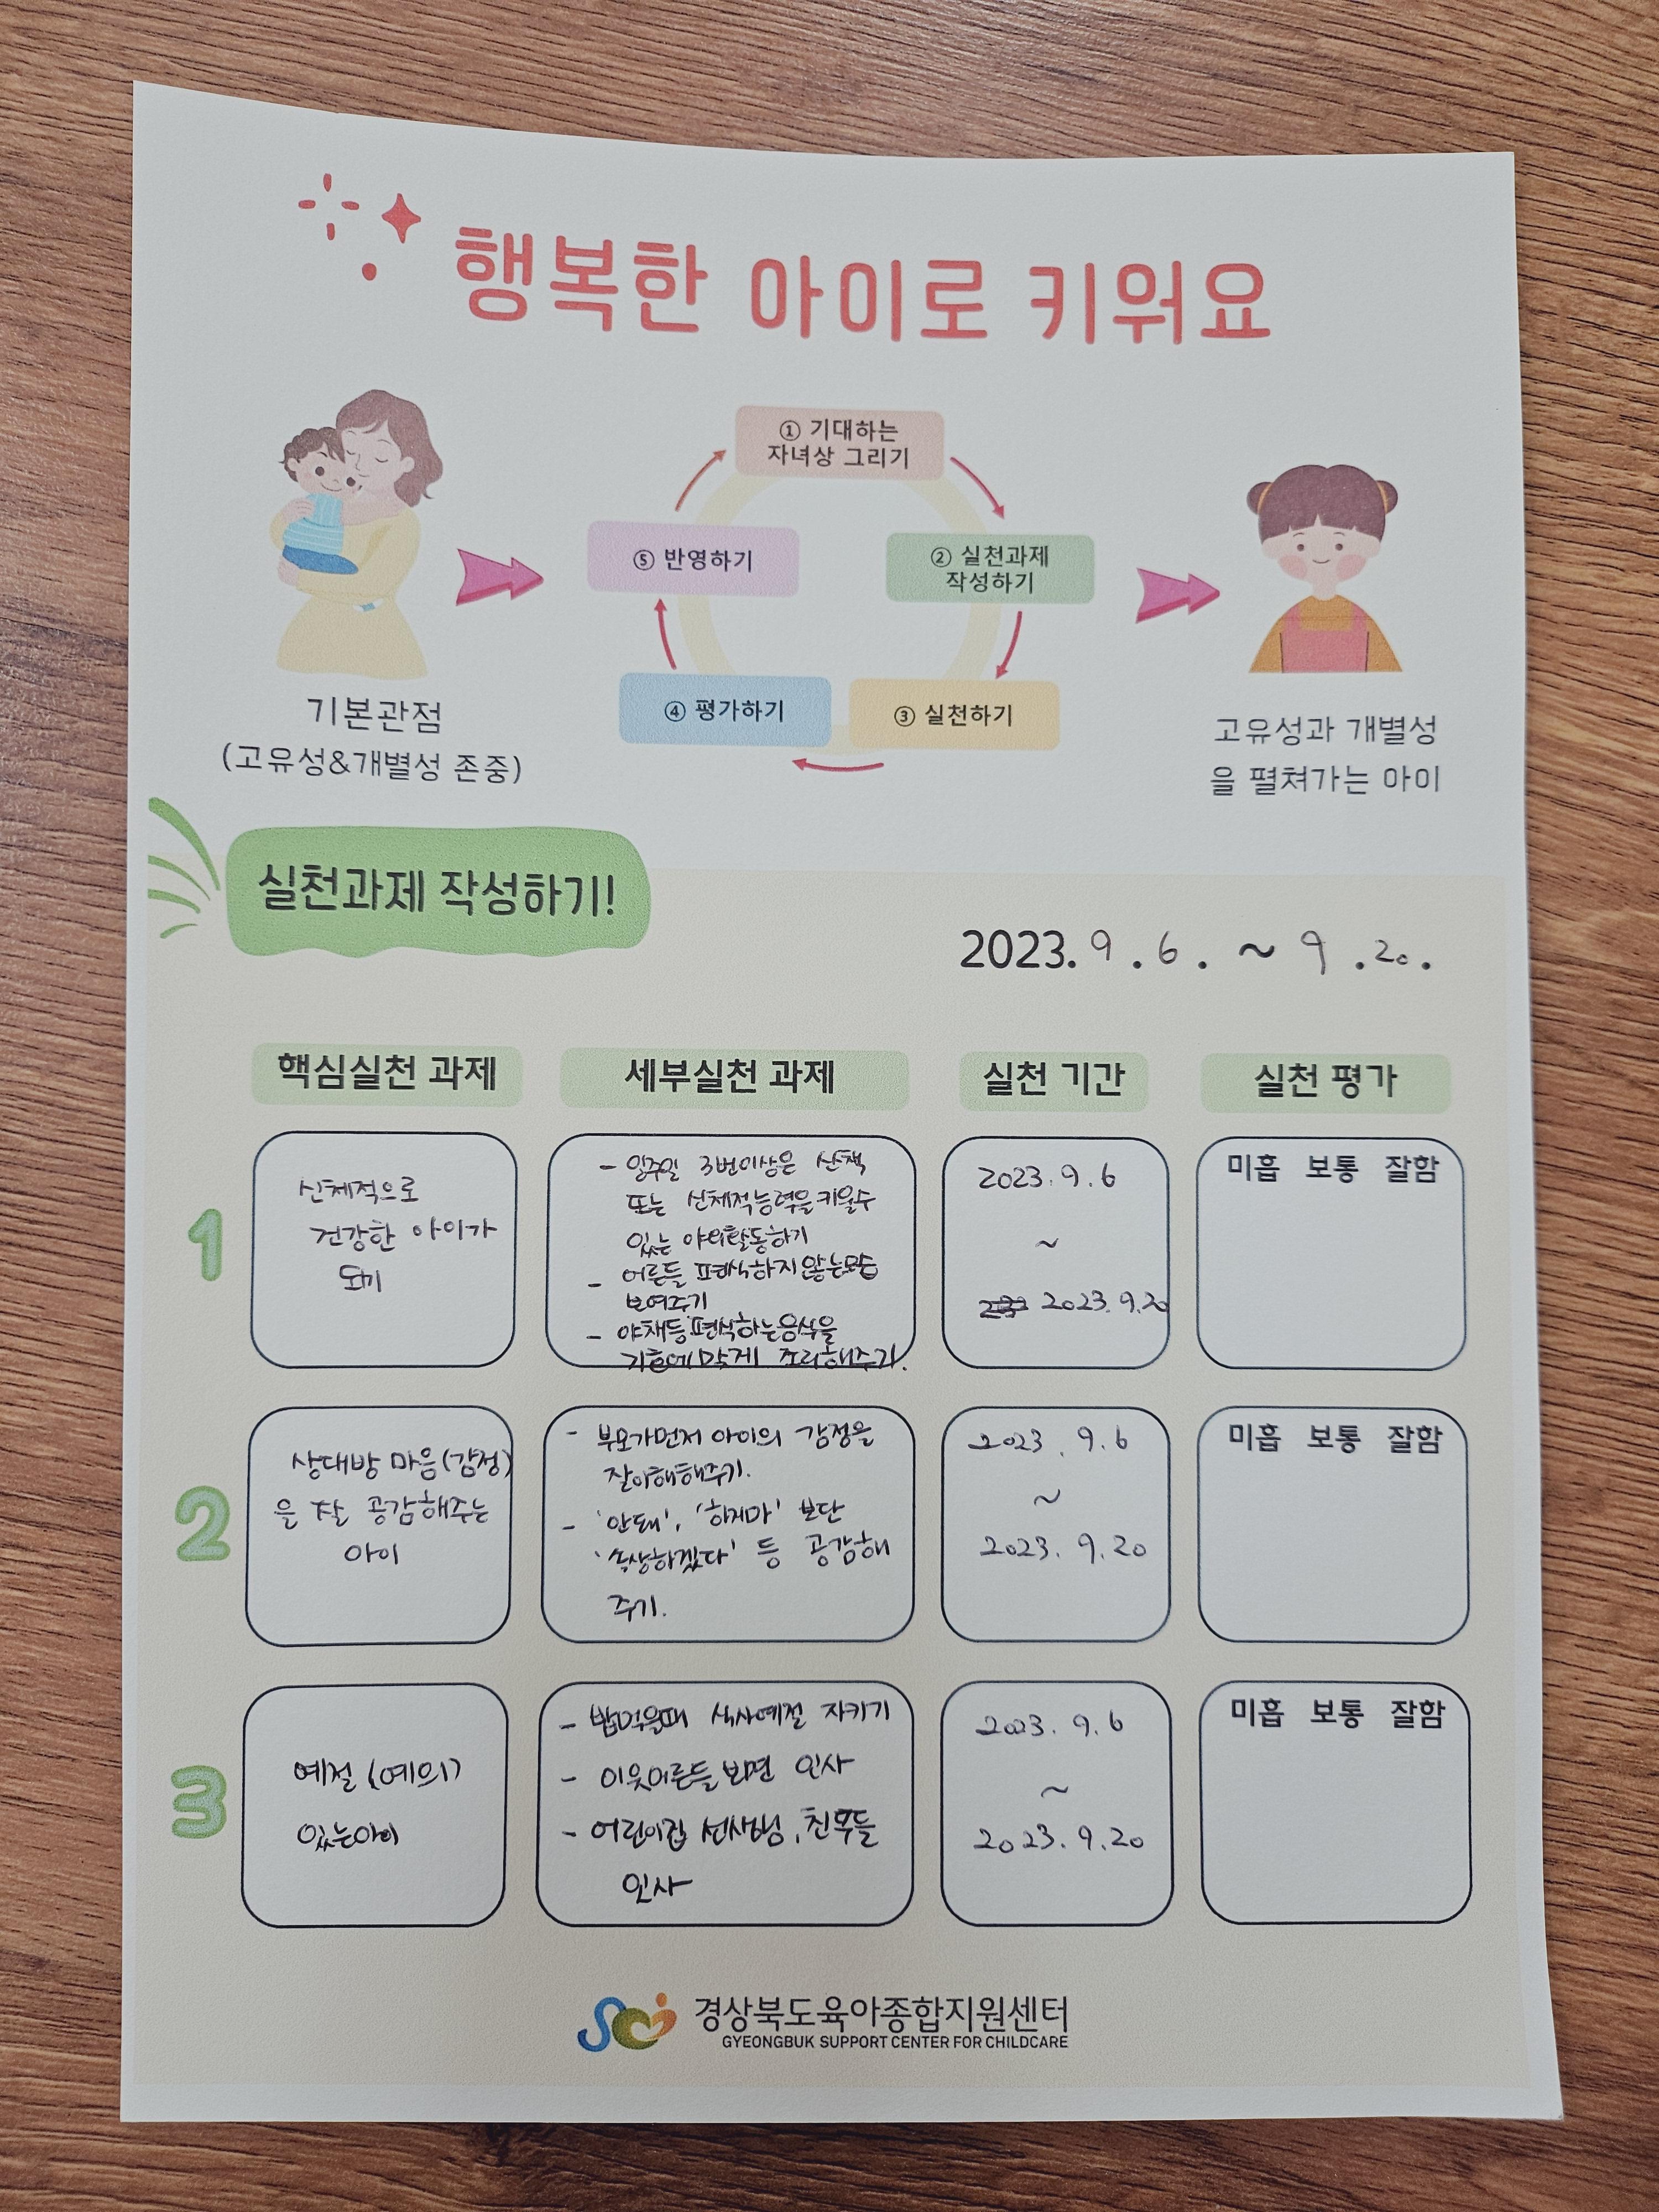 행복한 아이로 키워요
① 기대하는
자녀상 그리기
② 실천과제
작성하기
③ 실천하기
④ 평가하기
⑤ 반영하기
기본관점
(고유성&개별성 존중)
고유성과 개별성
을 펼쳐가는 아이
실천과제 작성하기!
2023. 9 . 6 . ~ 9 . 20 .
핵심실천 과제 세부실천 과제 실천 기간 실천 평가
1
신체적으로
건강한 아이가
되기
- 일주일 3번이상은 산책
또는 신체적능력을키울수
있는 야외활동하기
- 어른들 편식하지않는모습
보여주기
- 야채등편식하는음식을
기호에맞게 조리해주기.
2023. 9. 6
~
2023. 9. 20
미흡 보통 잘함
2
상대방 마음(감정)
을 잘 공감해주는
아이
- 부모가먼저 아이의 감정을
잘이해해주기.
- '안돼', '하지마' 보단
'속상하겠다' 등 공감해
주기.
2023. 9. 6
~
2023. 9. 20
미흡 보통 잘함
3
예절 (예의)
있는아이
- 밥먹을때 식사예절 지키기
- 이웃어른들보면 인사
- 어린이집 선생님, 친구들
인사
2023. 9. 6
~
2023. 9. 20
미흡 보통 잘함
경상북도육아종합지원센터
GYEONGBUK SUPPORT CENTER FOR CHILDCARE